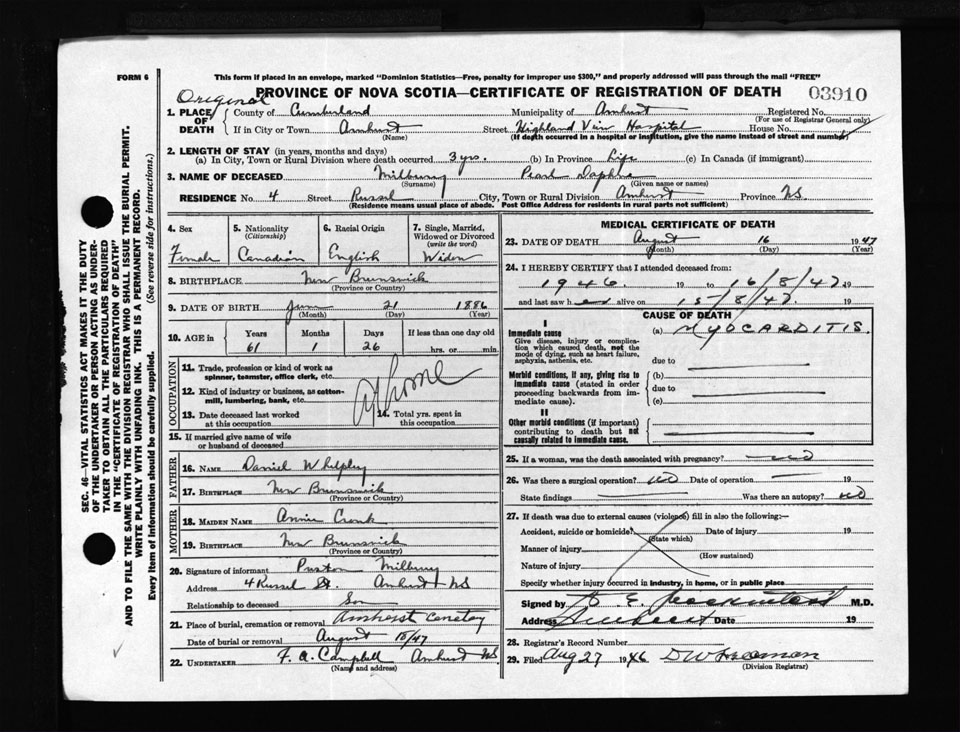 FORM 6
This form if placed in an envelope, marked "Dominion Statistics—Free, penalty for improper use $300," and properly addressed will pass through the mail "FREE"
PROVINCE OF NOVA SCOTIA—CERTIFICATE OF REGISTRATION OF DEATH
03910
Original
1. PLACE OF DEATH
County of Cumberland Municipality of Amherst Registered No.
(For use of Registrar General only)
If in City or Town Amherst Street Highland View Hospital House No.
(Name) (If death occurred in a hospital or institution, give the name instead of street and number)
2. LENGTH OF STAY (in years, months and days)
(a) In City, Town or Rural Division where death occurred 3 yrs. (b) In Province Life (c) In Canada (if immigrant)
3. NAME OF DECEASED Milburny Pearl Daphne
(Surname) (Given name or names)
RESIDENCE No. 4 Street Russel City, Town or Rural Division Amherst Province NS
(Residence means usual place of abode. Post Office Address for residents in rural parts not sufficient)
4. Sex 5. Nationality (Citizenship) 6. Racial Origin 7. Single, Married, Widowed or Divorced (write the word)
Female Canadian English Widow
8. BIRTHPLACE New Brunswick
(Province or Country)
9. DATE OF BIRTH June 21 1886
(Month) (Day) (Year)
10. AGE in Years Months Days If less than one day old
61 1 26 hrs. or min.
OCCUPATION
11. Trade, profession or kind of work as spinner, teamster, office clerk, etc.
12. Kind of industry or business, as cotton-mill, lumbering, bank, etc.
At home
13. Date deceased last worked at this occupation
14. Total yrs. spent in this occupation
15. If married give name of wife or husband of deceased
FATHER
16. NAME Daniel Whelpley
17. BIRTHPLACE New Brunswick
(Province or Country)
MOTHER
18. MAIDEN NAME Annie Cronk
19. BIRTHPLACE New Brunswick
(Province or Country)
20. Signature of informant Preston Milbury
Address 4 Russel St. Amherst NS
Relationship to deceased Son
21. Place of burial, cremation or removal Amherst Cemetery
Date of burial or removal August 18/47
22. UNDERTAKER F. A. Campbell Amherst NS
(Name and address)
MEDICAL CERTIFICATE OF DEATH
23. DATE OF DEATH August 16 1947
(Month) (Day) (Year)
24. I HEREBY CERTIFY that I attended deceased from:
1946. 19 to 16/8/47. 19
and last saw her alive on 15/8/47. 19
CAUSE OF DEATH
I
Immediate cause (a) MYOCARDITIS.
Give disease, injury or complication which caused death, not the mode of dying, such as heart failure, asphyxia, asthenia, etc.
due to
Morbid conditions, if any, giving rise to immediate cause (stated in order proceeding backwards from immediate cause).
(b)
due to
(c)
II
Other morbid conditions (if important) contributing to death but not causally related to immediate cause.
25. If a woman, was the death associated with pregnancy? no
26. Was there a surgical operation? no Date of operation 19
State findings Was there an autopsy? no
27. If death was due to external causes (violence) fill in also the following:—
Accident, suicide or homicide? Date of injury 19
(State which)
Manner of injury
(How sustained)
Nature of injury
Specify whether injury occurred in industry, in home, or in public place
Signed by M.D.
Address Amherst Date 19
28. Registrar's Record Number
29. Filed Aug 27 1946
(Division Registrar)
SEC. 46—VITAL STATISTICS ACT MAKES IT THE DUTY
OF THE UNDERTAKER OR PERSON ACTING AS UNDER-
TAKER TO OBTAIN ALL THE PARTICULARS REQUIRED
IN THE "CERTIFICATE OF REGISTRATION OF DEATH"
AND TO FILE THE SAME WITH THE DIVISION REGISTRAR WHO SHALL ISSUE THE BURIAL PERMIT.
WRITE PLAINLY WITH UNFADING INK. THIS IS A PERMANENT RECORD.
Every item of information should be carefully supplied. (See reverse side for instructions.)